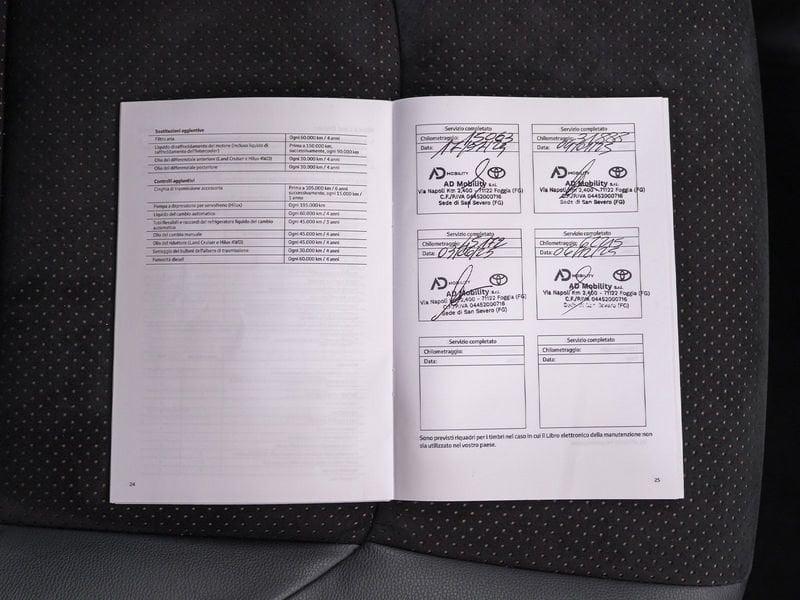 Sostituzioni aggiuntive
Filtro aria Ogni 60.000 km / 4 anni
Liquido di raffreddamento del motore (incluso liquido di raffreddamento dell'intercooler) Prima a 150.000 km, successivamente, ogni 90.000 km
Olio del differenziale anteriore (Land Cruiser e Hilux 4WD) Ogni 30.000 km / 4 anni
Olio del differenziale posteriore Ogni 30.000 km / 4 anni
Controlli aggiuntivi
Cinghia di trasmissione accessoria Prima a 105.000 km / 6 anni successivamente, ogni 15.000 km / 1 anno
Pompa a depressione per servofreno (Hilux) Ogni 195.000 km
Liquido del cambio automatico Ogni 60.000 km / 4 anni
Tubi flessibili e raccordi del refrigeratore liquido del cambio automatico Ogni 45.000 km / 3 anni
Olio del cambio manuale Ogni 45.000 km / 4 anni
Olio del riduttore (Land Cruiser e Hilux 4WD) Ogni 45.000 km / 4 anni
Serraggio dei bulloni dell'albero di trasmissione Ogni 30.000 km / 4 anni
Fumosità diesel Ogni 60.000 km / 4 anni
24
Servizio completato
Chilometraggio: 15063
Data:
AD MOBILITY TOYOTA
AD Mobility s.r.l.
Via Napoli Km 2,400 - 71122 Foggia (FG)
C.F./P.IVA 04452000716
Sede di San Severo (FG)
Servizio completato
Chilometraggio:
Data:
AD MOBILITY TOYOTA
AD Mobility s.r.l.
Via Napoli Km 2,400 - 71122 Foggia (FG)
C.F./P.IVA 04452000716
Sede di San Severo (FG)
Servizio completato
Chilometraggio:
Data:
AD MOBILITY TOYOTA
AD Mobility s.r.l.
Via Napoli Km 2,400 - 71122 Foggia (FG)
C.F./P.IVA 04452000716
Sede di San Severo (FG)
Servizio completato
Chilometraggio:
Data:
AD MOBILITY TOYOTA
AD Mobility s.r.l.
Via Napoli Km 2,400 - 71122 Foggia (FG)
C.F./P.IVA 04452000716
Sede di San Severo (FG)
Servizio completato
Chilometraggio:
Data:
Servizio completato
Chilometraggio:
Data:
Sono previsti riquadri per i timbri nel caso in cui il Libro elettronico della manutenzione non
sia utilizzato nel vostro paese.
25